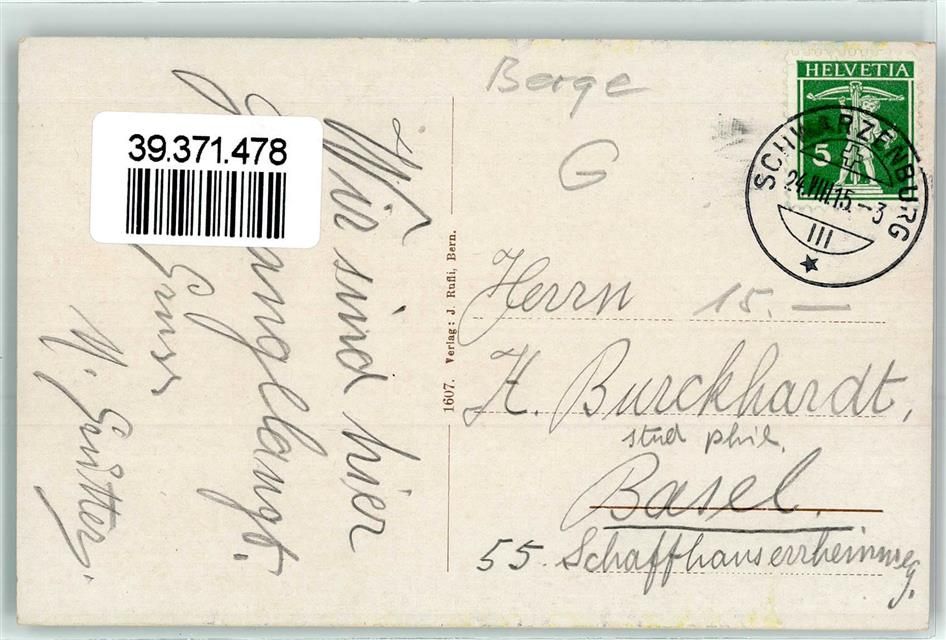 39.371.478
Wir sind hier
anglangt.
Gruss
Berge
G
HELVETIA
5
SCHWARZENBURG
24.IIII15.–3
III
1607. Verlag: J. Rufli, Bern.
Herrn 15.—
H. Burckhardt,
stud phil.
Basel.
55. Schaffhauserrheinweg.